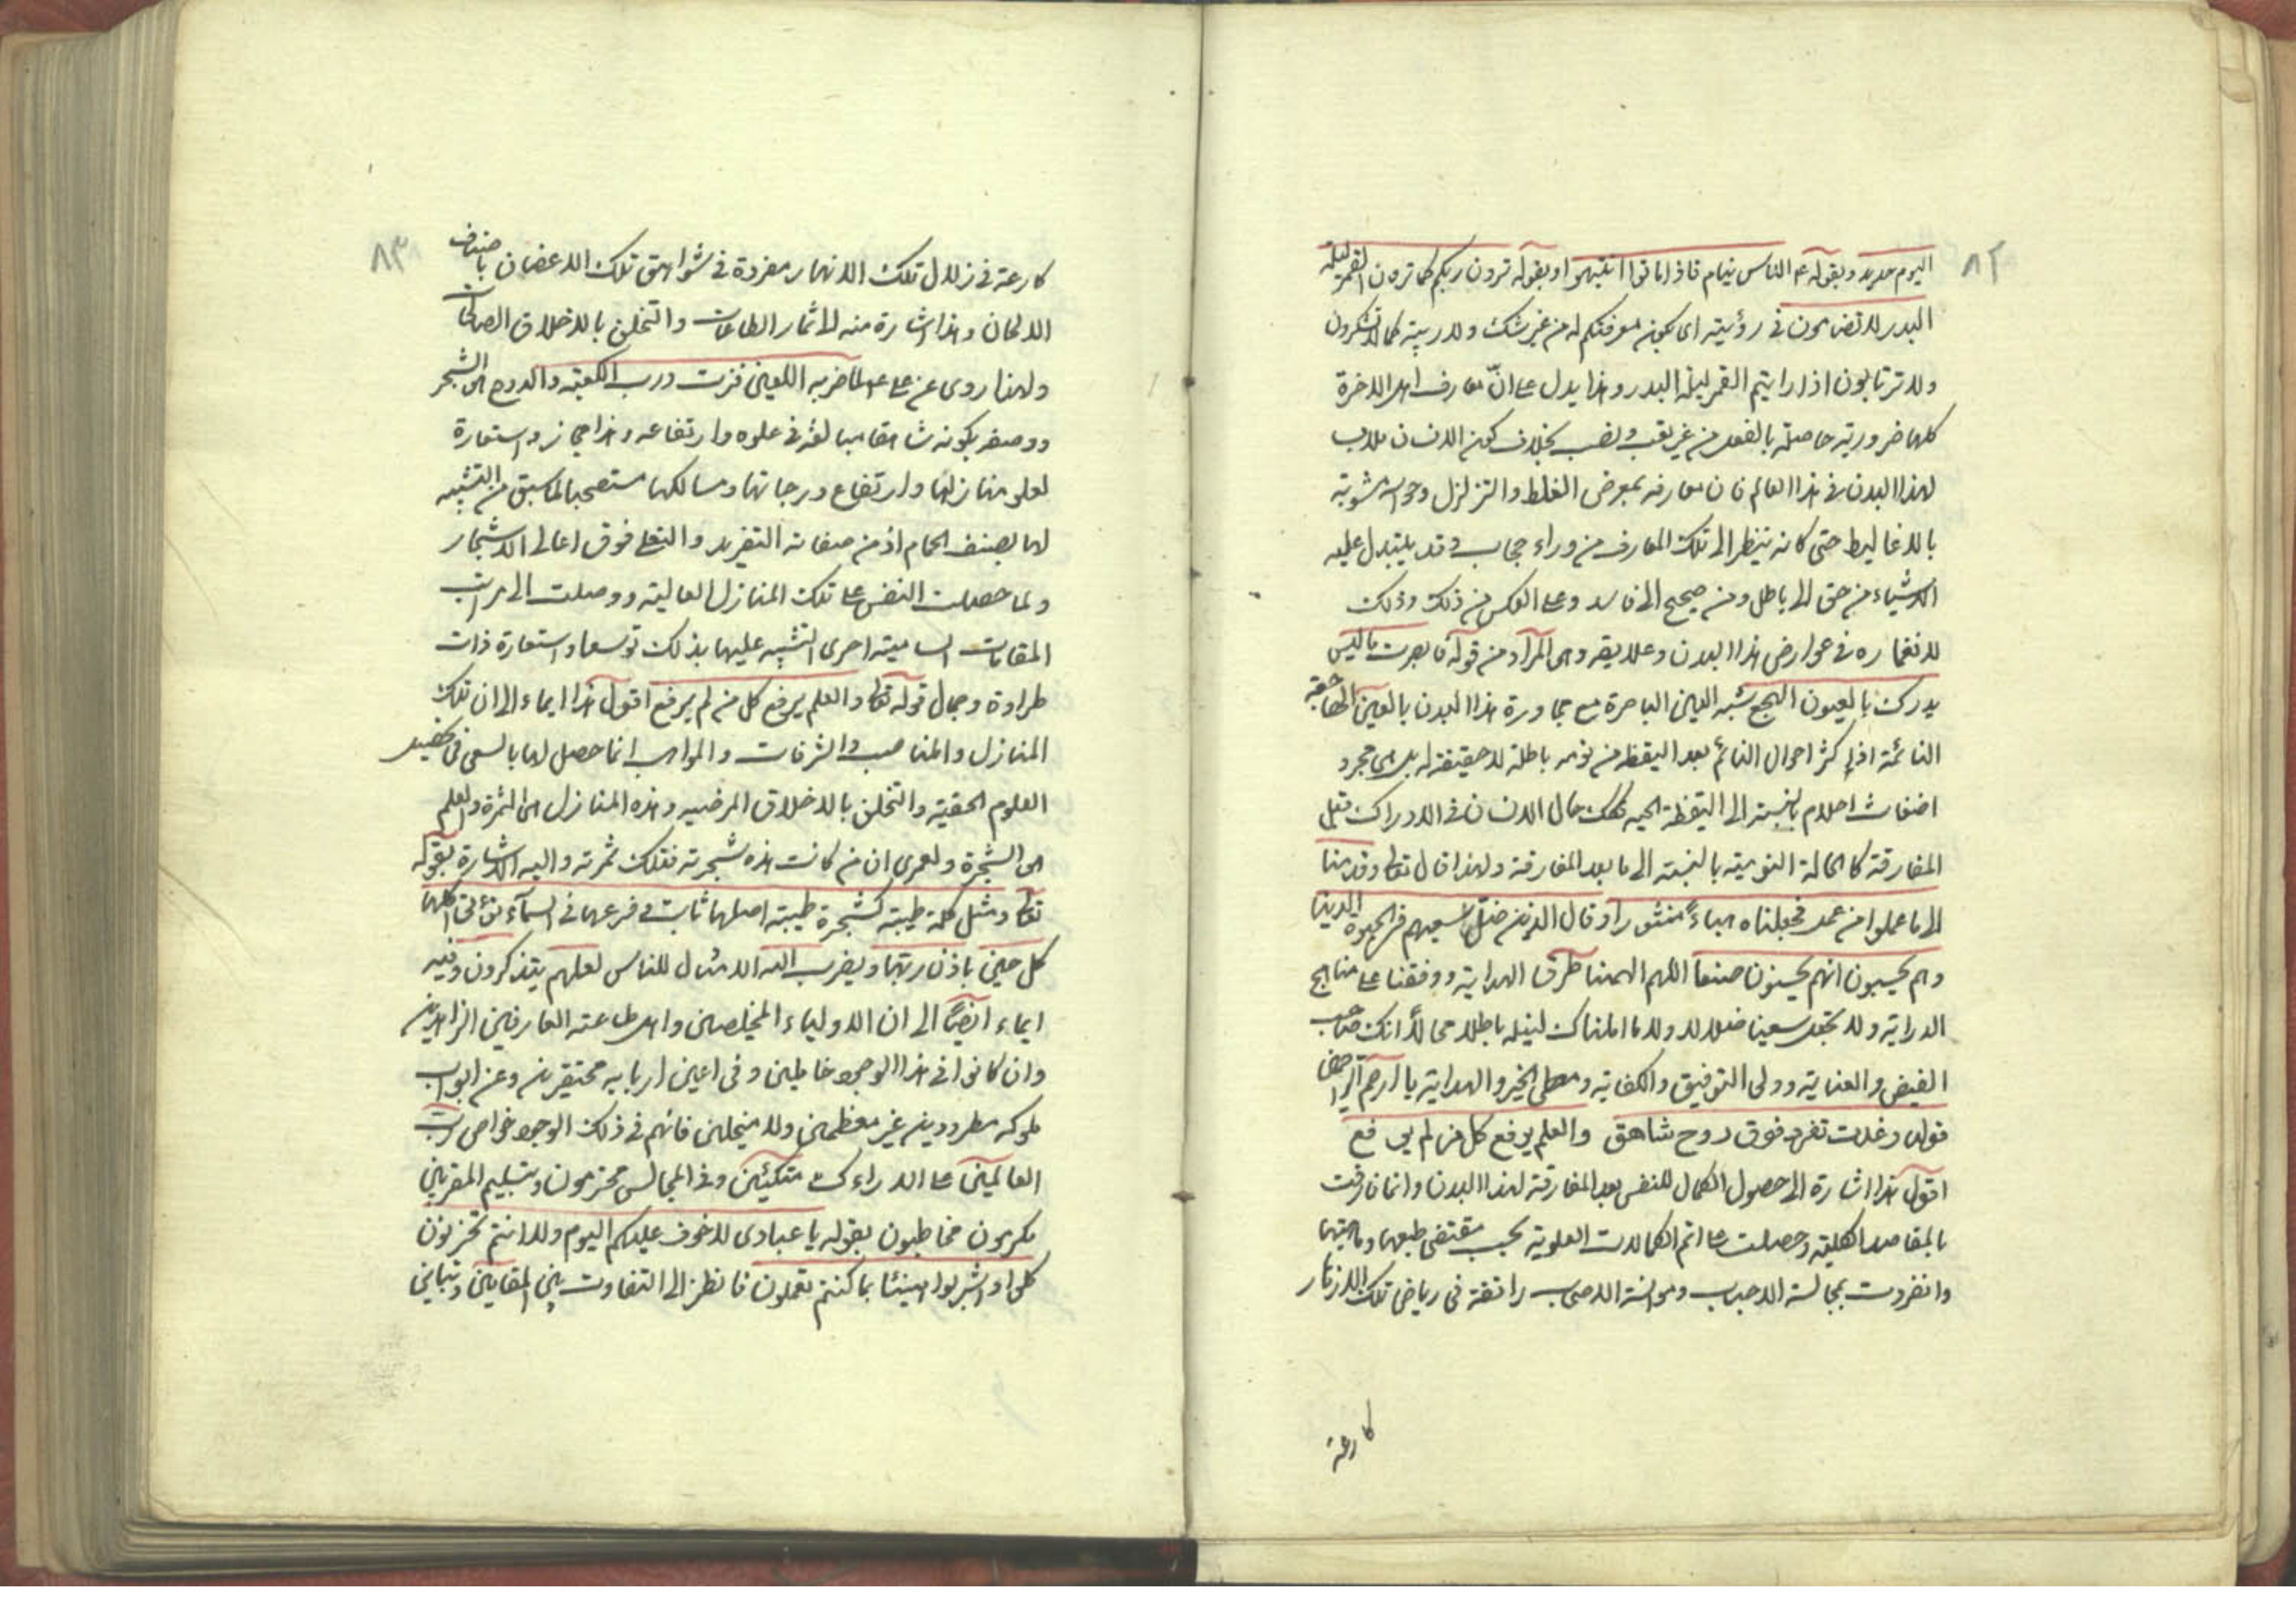 ٨٢
اليوم حديد وبقوله ع الناس نيام فاذا ماتوا انتبهوا وبقوله ترون ربكم كما ترون القمر ليلة
البدر لا تضامون في رؤيته اى يكون معرفتكم له من غير شك ولا ريبة كما لا تشكون
ولا ترتابون اذا رايتم القمر ليلة البدر وهذا يدل على انّ معارف اهل الاخرة
كلها ضرورية حاصلة بالفعل من غير تعب ونصب بخلاف كون الانسان ملابس
لهذا البدن فى هذا العالم فان معارفه بمعرض الغلط والتزلزل وحواسه مشوبة
بالاغاليط حتى كانه ينظر الى تلك المعارف من وراء حجاب وقد يتبدل عليه
الاشياء من حق الى باطل ومن صحيح الى فاسد وعلى العكس من ذلك وذلك
لانغماره فى عوارض هذا البدن وعلايقه وهو المراد من قوله فابصرت ما ليس
يدرك بالعيون الهجع شبه العين الباصرة مع مجاورة هذا البدن بالعين الهاجعة
النائمة اذ اكثر احوال النائم بعد اليقظة من نومه باطلة لا حقيقة له بل هى مجرد
اضغاث احلام بالنسبة الى اليقظة الحسية فكذلك حال الانسان فى الادراك قبل
المفارقة كالحالة النومية بالنسبة الى ما بعد المفارقة ولهذا قال تعالى وقدمنا
الى ما عملوا من عمل فجعلناه هباءً منثورا وقال الذين ضلّ سعيهم فى الحيوة الدنيا
وهم يحسبون انهم يحسنون صنعا اللهم الهمنا طرق الهداية ووفقنا على مناهج
الدراية ولا تجعل سعينا ضلالا ولا ما املناك لنيله باطلا محالا انك صاحب
الفيض والعناية وولى التوفيق والكفاية ومعطى الخير والهداية يا ارحم الراحمين
قوله وغدت تغرد فوق دوح شاهق والعلم يرفع كل من لم يرفع
اقول هذا اشارة الى حصول الكمال للنفس بعد المفارقة لهذا البدن وانما فازت
بالمقاصد الكلية وحصلت على اتم الكمالات العلوية بحسب مقتضى طبعها وماهيتها
وانفردت بمجالسة الاحباب وموانسة الاصحاب راتعة فى رياض تلك الازهار
كارعة
٨٣
كارعة فى زلال تلك الانهار مغردة فى شواهق تلك الاغصان باصناف
الالحان وهذا اشارة منه الى ثمار الطاعات والتخلق بالاخلاق الصالحات
ولهذا روى عن على ع لما ضربه اللعين فزت ورب الكعبة والدوح هو الشجر
ووصفه بكونه شاهقا مبالغة فى علوه وارتفاعه وهذا مجاز واستعارة
لعلو منازلها وارتفاع درجاتها ومسالكها مستصحبا لما سبق من التشبيه
لها بصنف الحمام اذ من صفاته التغريد والتعلى فوق اعالى الاشجار
ولما حصلت النفس على تلك المنازل العالية ووصلت الى مراتب
المقامات السامية اجرى التشبيه عليها بذلك توسعا واستعارة ذات
طراوة وجمال قوله تعالى والعلم يرفع كل من لم يرفع اقول هذا ايماء الى ان تلك
المنازل والمناصب والشرفات والمواهب انما حصل لها بالسعى فى تحصيل
العلوم الحقية والتخلق بالاخلاق المرضيه وهذه المنازل هى الثمرة والعلم
هو الشجرة ولعمرى ان من كانت هذه شجرته فتلك ثمرته واليه الاشارة بقوله
تعالى ومثل كلمة طيبة كشجرة طيبة اصلها ثابت وفرعها فى السماء تؤتى اكلها
كل حين باذن ربّها ويضرب الله الامثال للناس لعلهم يتذكرون وفيه
ايماء ايضاً الى ان الاولياء المخلصين واهل طاعته العارفين الزاهدين
وان كانوا فى هذا الوجود خاملين وفى اعين اربابه محتقرين وعن ابواب
ملوكه مطرودين غير معظمين ولا مبجلين فانهم فى ذلك الوجود خواص رب
العالمين على الارائك متكئين وفى المجالس محترمون وبتسليم المقربين
مكرمون مخاطبون بقوله يا عبادى لا خوف عليكم اليوم ولا انتم تحزنون
كلوا واشربوا هنيئا بما كنتم تعملون فانظر الى التفاوت بين المقامين وتباين